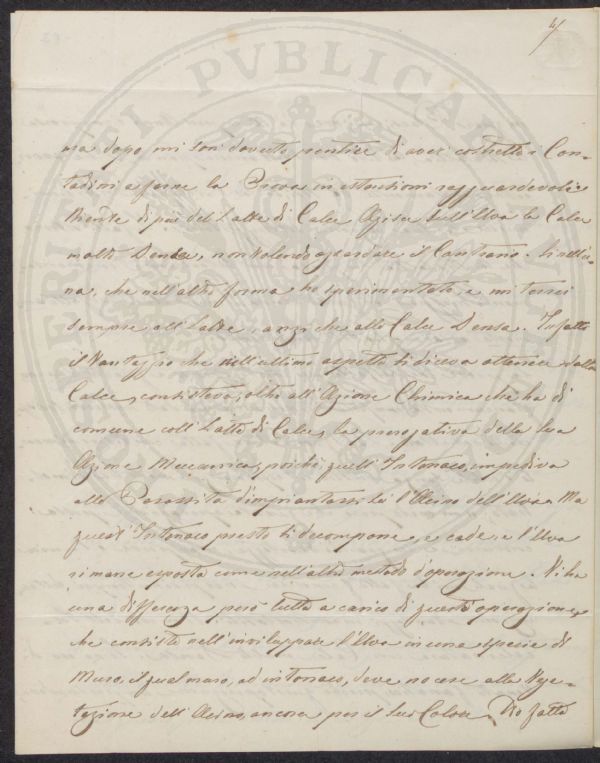 4/
PROSPERITATI PUBLICAE AUGENDAE
ma dopo mi son dovuto pentire di aver costretto i Con-
tadini a farne la Prova in estensioni ragguardevoli.
Niente di più del Latte di Calce agisce sull'Uva la Calce
molto Densa, non volendo azzardare il Contrario.
na, che nell'altra forma ho sperimentato, e mi terrei
sempre al Latte, anzi che alla Calce Densa. Infatti
il Vantaggio che nell'ultimo aspetto si diceva ottenere dalla
Calce, consisteva, oltre all'Azione Chimica che ha di
comune col Latte di Calce, la prerogativa della sua
Azione Meccanica, poichè quell'Intonaco, impediva
alla Parassita d'impiantarsi l'Acino dell'Uva. Ma
quest'Intonaco presto si decompone, e cade, e l'Uva
rimane esposta come nell'altro metodo d'operazione. Vi ha
una differenza però tutta a carico di questa operazione,
che consiste nell'inviluppare l'Uva in una specie di
Muro, il qual muro, od intonaco, deve nocere alla Vege-
tazione dell'Acino, ancora per il suo Calore. Ho fatto